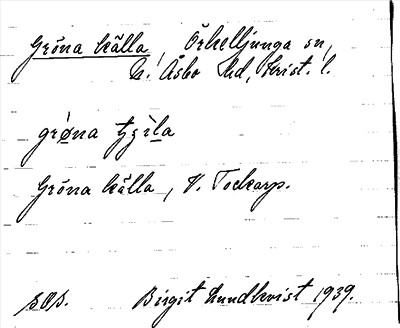 Gröna källa, Örkelljunga sn,
N. Åsbo hd, Krist. l.
Gröna källa, V. Tockarp.
Birgit Lundkvist 1939.